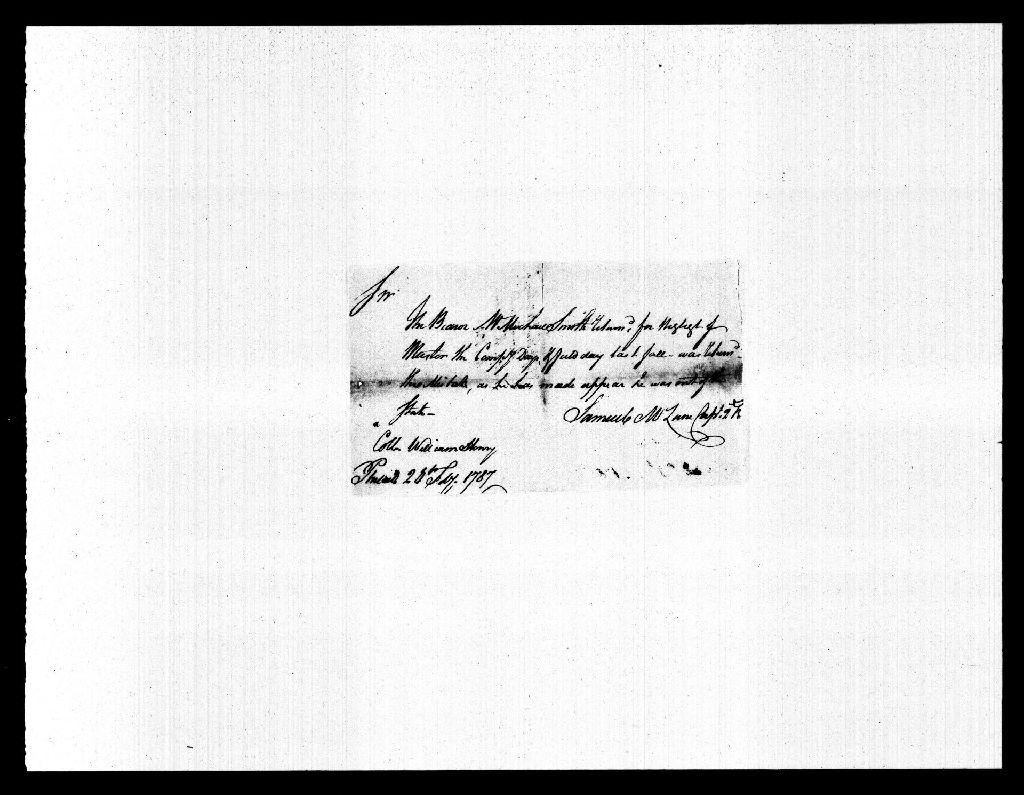 Sir
The Bearer Mr Michael Smith Return'd for Neglect of
Muster the Compy Days & field day last fall was Return'd
thro Mistake, as he has made appear he was out of
State
Samuel Mc Lane Capt. 2
Collo William Henry
Philad 28th Feby. 1787